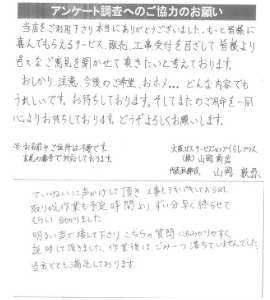 アンケート調査へのご協力のお願い
当店をご利用下さり本当にありがとうございました。もっと皆様に
喜んでもらえるサービス、販売、工事受付を目ざして皆様より
色々なご意見を聞かせて頂きたいと考えております。
おしかり、注意、今後のご希望、おホメ… どんな内容でも
うれしいです。お待ちしております。そしてまたのご用命を一同
心よりお待ちしております。どうぞよろしくお願いします。
※お名前やご住所は不要です。
大阪ガスサービスショップくらしプラス
(株)山岡商店
山岡
ていねいに声かけして頂き 工事もテキパキしておられ
取りつけ作業も予定時間より ずい分早く終らせて
もらい 助かりました
明るい声で接して下さり こちらの質問にもわかりやすく
説明して頂きました。作業後はごみ一つ落ちていませんでした。
とても満足しております